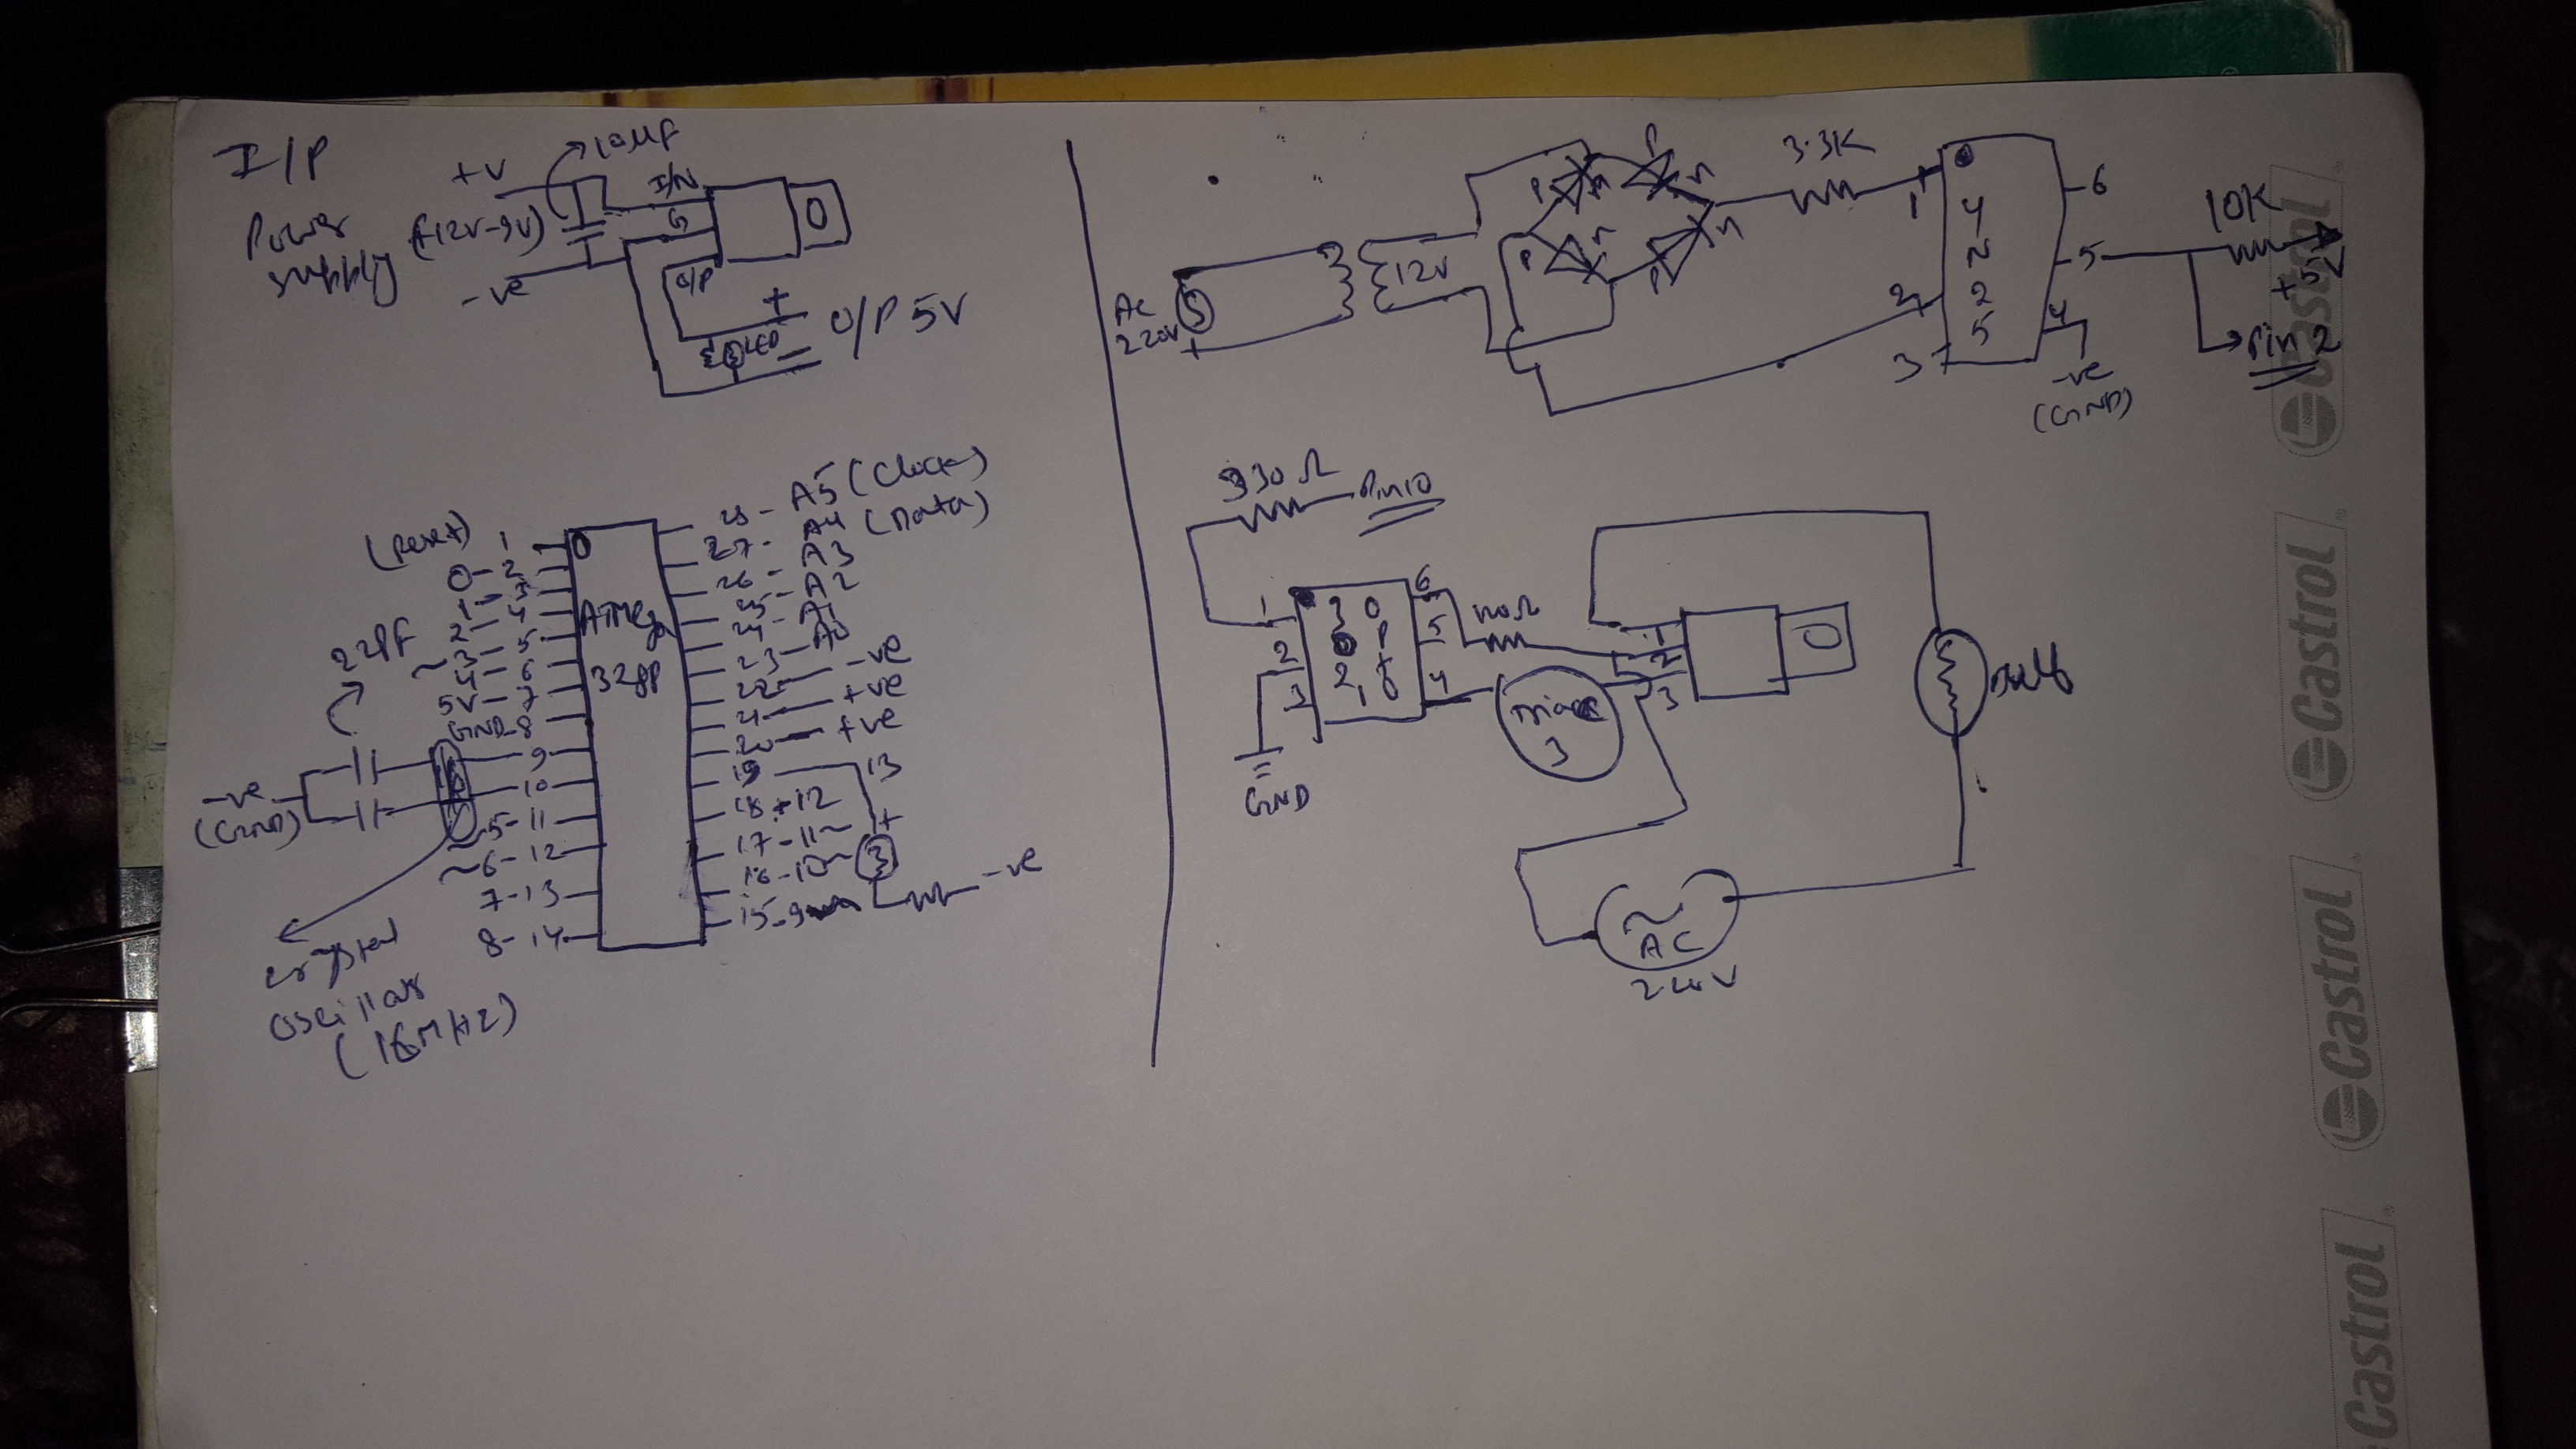 I/P
Power
supply
(12V-9V)
+V
-ve
10µf
I/P
G
O/P
LED
+
O/P 5V
(Reset)
1
0-2
1-3
2-4
~3-5
4-6
5V-7
GND-8
9
10
~5-11
~6-12
7-13
8-14
22pf
-ve
(GND)
crystal
oscillator
(16MHz)
ATMega
328P
28-A5 (Clock)
27-A4 (Data)
26-A3
25-A2
24-A1
23-A0
22 -ve
21 +ve
20 +ve
19 13
18-12
17-11~
16-10~
15-9~
+
-ve
AC
220V
12V
P n
P n
P n
P n
3.3K
1
2
3
4N25
6
5
4
-ve
(GND)
10K
+5V
Pin 2
330Ω
Pin10
1
2
3
GND
6
5
4
Triac
3
1
2
3
AC
Bulb
Castrol
Castrol
Castrol
Castrol